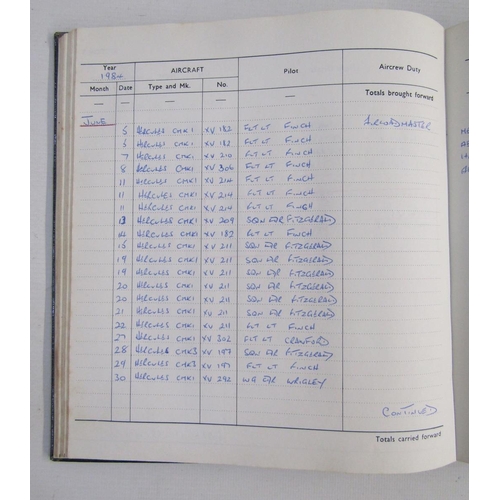 Year
1984
AIRCRAFT
Pilot
Aircrew Duty
Month Date Type and Mk. No.
— — — — —
Totals brought forward
JUNE
5 HERCULES CMK1 XV 182 FLT LT FINCH AIRLOADMASTER
5 HERCULES CMK1 XV 182 FLT LT FINCH
7 HERCULES CMK1 XV 210 FLT LT FINCH
8 HERCULES CMK1 XV 306 FLT LT FINCH
11 HERCULES CMK1 XV 214 FLT LT FINCH
11 HERCULES CMK1 XV 214 FLT LT FINCH
11 HERCULES CMK1 XV 214 FLT LT FINCH
13 HERCULES CMK1 XV 209 SQN LDR FITZGERALD
14 HERCULES CMK1 XV 182 FLT LT FINCH
15 HERCULES CMK1 XV 211 SQN LDR FITZGERALD
19 HERCULES CMK1 XV 211 SQN LDR FITZGERALD
19 HERCULES CMK1 XV 211 SQN LDR FITZGERALD
20 HERCULES CMK1 XV 211 SQN LDR FITZGERALD
20 HERCULES CMK1 XV 211 SQN LDR FITZGERALD
21 HERCULES CMK1 XV 211 SQN LDR FITZGERALD
22 HERCULES CMK1 XV 211 FLT LT FINCH
27 HERCULES CMK1 XV 302 FLT LT CRAWFORD
28 HERCULES CMK3 XV 197 SQN LDR FITZGERALD
29 HERCULES CMK3 XV 197 FLT LT FINCH
30 HERCULES CMK1 XV 292 WG CDR WRIGLEY
CONTINUED
Totals carried forward